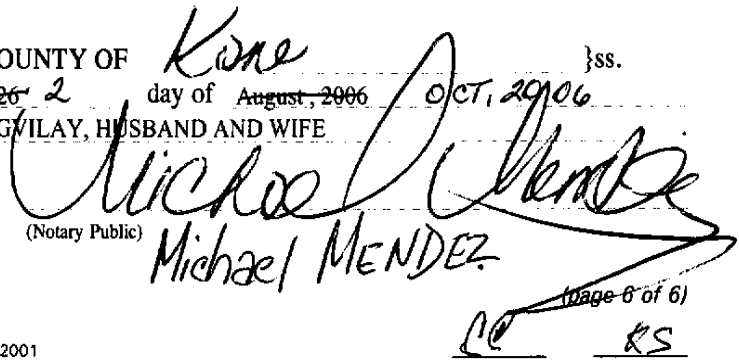 OUNTY OF Kane }ss.
26 2 day of August, 2006 OCT, 2006
GVILAY, HUSBAND AND WIFE
Michael Mendez
(Notary Public)
Michael MENDEZ
(page 6 of 6)
CC RS
2001